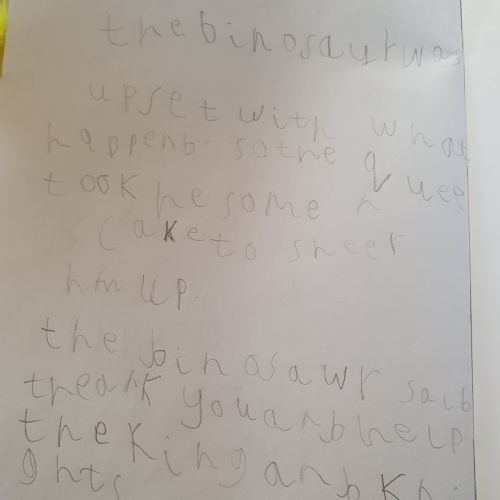 the binosaur was
upset with what
happenb. so the quee
n
took he some
cake to sheer
him up.
the binosawr saib
theank you anb help
the King anb Kni
ghts